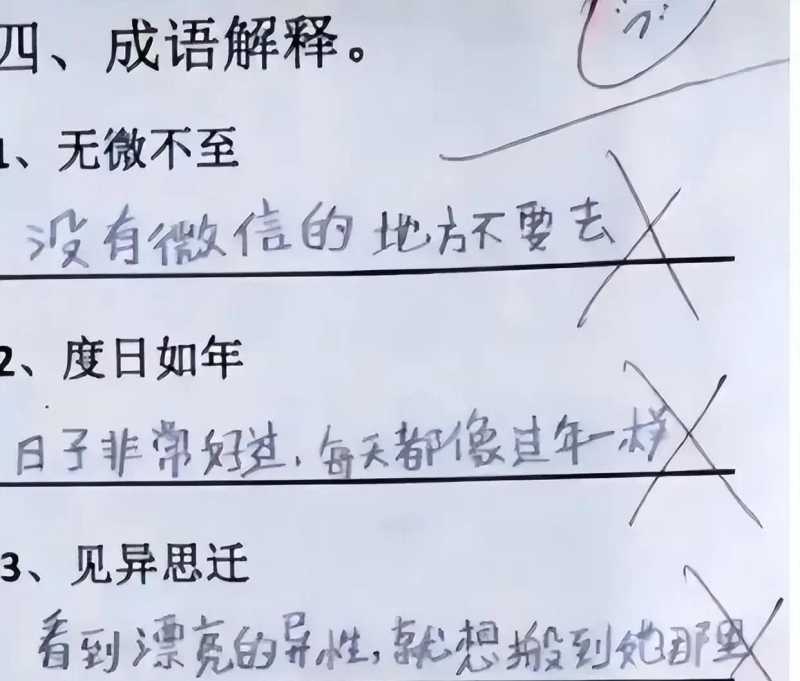 四、成语解释。
1、无微不至
没有微信的地方不要去
2、度日如年
日子非常好过,每天都像过年一样
3、见异思迁
看到漂亮的异性,就想搬到她那里